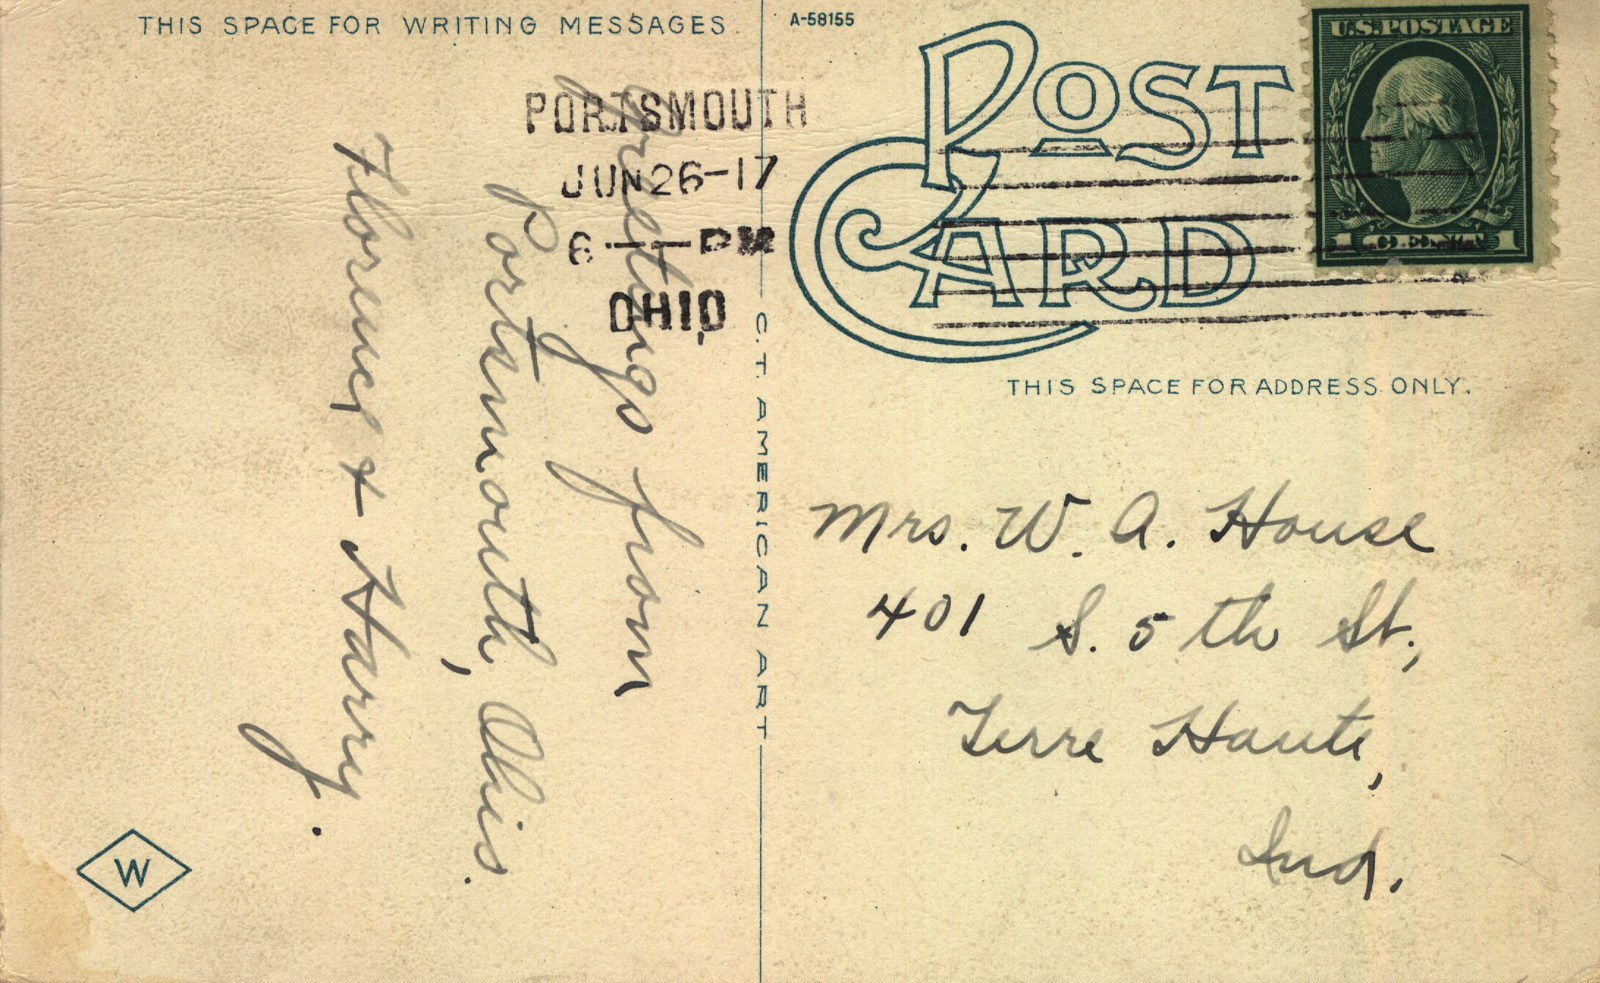 THIS SPACE FOR WRITING MESSAGES.
A-58155
POST CARD
U.S. POSTAGE
1
PORTSMOUTH
JUN 26-17
6 — PM
OHIO
Greetings from
Portsmouth, Ohio.
Florence & Harry.
C.T. AMERICAN ART
THIS SPACE FOR ADDRESS ONLY.
Mrs. W. A. House
401 S. 5th St.,
Terre Haute,
Ind.
W